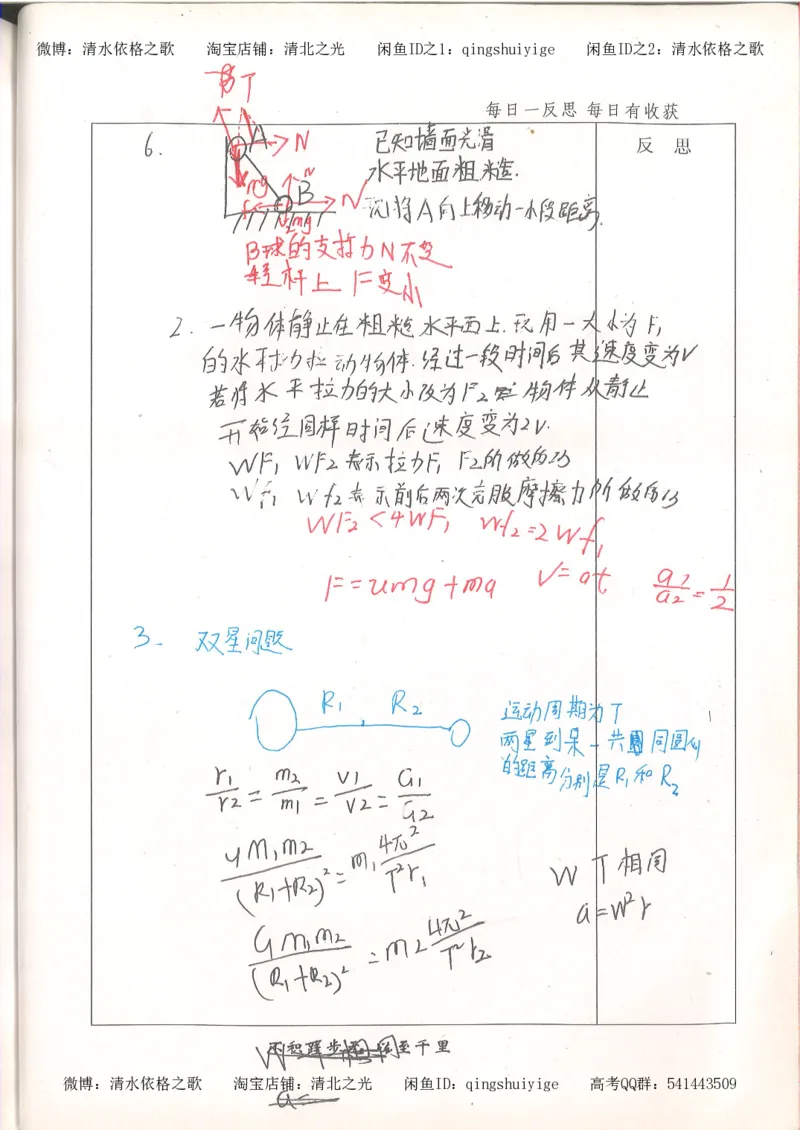 微博：清水依格之歌 淘宝店铺：清北之光 闲鱼ID之1：qingshuiyige 闲鱼ID之2：清水依格之歌
每日一反思 每日有收获
反 思
6.
T
A
N
mg
N
B
N
f
2mg
已知墙面光滑
水平地面粗糙.
现将A向上移动一小段距离.
B球的支持力N不变
轻杆上 F变小
2. 一物体静止在粗糙水平面上.现用一大小为F1
的水平拉力拉动物体.经过一段时间后其速度变为V
若将水平拉力的大小改为F2 物体从静止
开始经同样时间后速度变为2V.
WF1 WF2表示拉力F1 F2所做的功
Wf1 Wf2表示前后两次克服摩擦力所做的功
WF2<4WF1 Wf2=2Wf1
F=umg+ma V=at a1/a2=1/2
3. 双星问题
R1 R2
运动周期为T
两星到某一共同圆心
的距离分别是R1和R2
r1/r2=m2/m1=V1/V2=G1/G2
GM1m2/(R1+R2)²=m1 4π²/T² r1
W T相同
a=W²r
Gm1m2/(R1+R2)²=m2 4π²/T² r2
不积跬步 至千里
微博：清水依格之歌 淘宝店铺：清北之光 闲鱼ID：qingshuiyige 高考QQ群：541443509